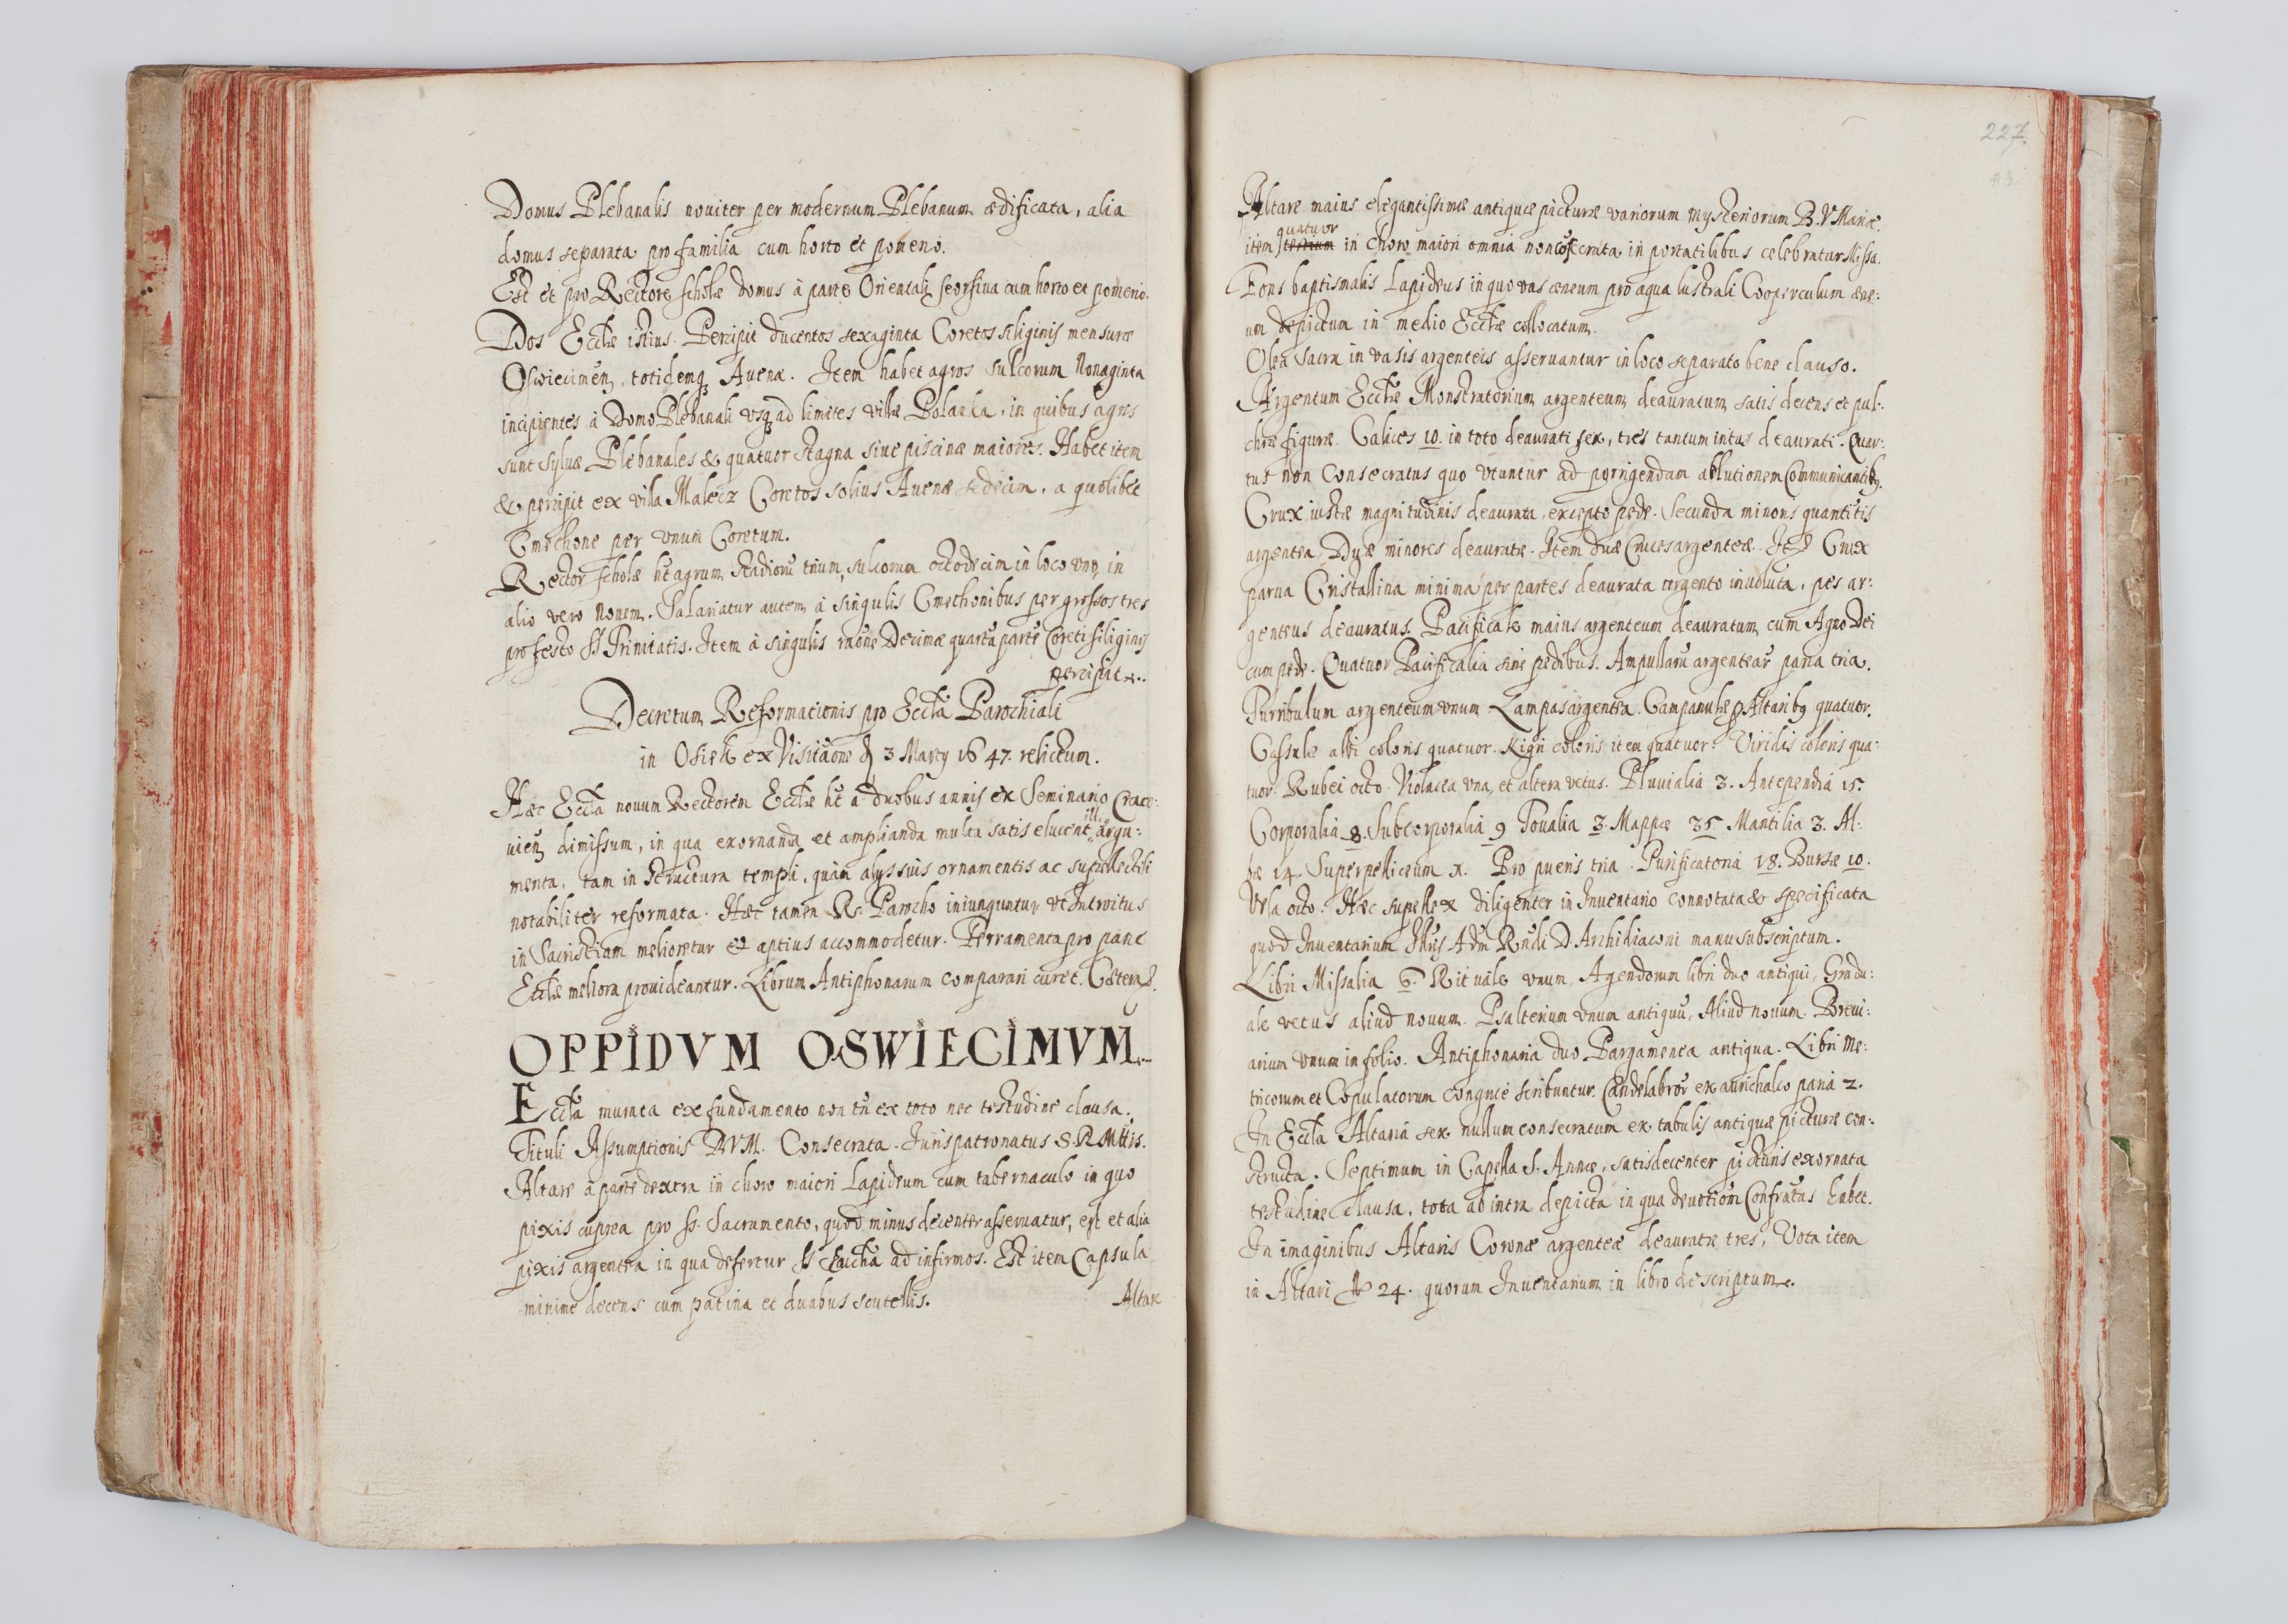 Domus Plebanalis noviter per modernum Plebanum ædificata, alia
domus separata pro familia cum horto et pomerio.
Est et pro Rectore scholæ domus à parte Orientali seorsiva cum horto et pomerio.
Dos Eccłæ istius. Percipit ducentos sexaginta Coretos siliginis mensuræ
Oswiecimen. totidemq3 Auenæ. Item habet agros sulcorum Nonaginta
incipientes à Domo Plebanali vsq3 ad limites villæ Polanka, in quibus agris
sunt syluæ Plebanales & quatuor stagna siue piscinæ maiores. Habet item
& percipit ex villa Malecz Coretos solius Auenæ sedecim, a quolibet
Cmethone per vnum Coretum.
Rector scholæ ht agrum stadiorū trium, sulcorum octodecim in loco vno, in
alio vero Nonem. Salariatur autem à singulis Cmethonibus per grossos tres
pro festo SS Trinitatis. Item à singulis raōne Decimæ quartā partē Coreti siliginis
percipit.
Decretum Reformationis pro Eccła Parochiali
in Osiek ex Visitaōne d 3 Marty 1647. relictum.
Hæc Eccła nouum Rectorem Eccłæ ht à duobus annis ex Seminario Craco:
uień dimissum, in qua exornanda et amplianda multa satis elucent ill. argu:
menta, tam in structura templi, quàm alys suis ornamentis ac suppellectili
notabiliter reformata. Hæc tamen R. Parocho iniunguntur vt Introitus
in Sacristiam melioretur et aptius accommodetur. Ferramenta pro pane
Eccłæ meliora prouideantur. Librum Antiphonarum comparari curet. Cætera
OPPIDVM OSWIECIMVM.
Eccła murata ex fundamento non tn̄ ex toto nec testudine clausa.
Tituli Assumptionis BVM. Consecrata. Iurispatronatus S. R. Mttis.
Altare à parte dextra in choro maiori Lapideum cum tabernaculo in quo
pixis cuprea pro ss. Sacramento, quod minus decenter asseruatur, est et alia
pixis argentea in qua defertur SS Eucħa ad infirmos. Est item Capsula
minime decens cum patina et duabus scutellis.
Altare
227.
Altare maius elegantissimæ antiquæ picturæ variorum mysteriorum B. V Mariæ.
quatuor
item tertium in choro maiori omnia non cōsecrata in portatilibus celebratur Missa.
Fons baptismalis Lapideus in quo vas æneum pro aqua lustrali Cooperculum æne:
um depictum in medio Eccłæ collocatum.
Olea Sacra in vasis argenteis asseruantur in loco separato bene clauso.
Argentum Eccłæ Monstratorium argenteum deauratum satis decens et pul:
chræ figuræ. Calices 10. in toto deaurati sex, tres tantum intus deaurati. Quar:
tus non Consecratus quo vtuntur ad porrigendam ablutionem Communicantib9.
Crux iustæ magnitudinis deaurata, excepto pede. Secunda minoris quantitis
argentea, Duæ minores deauratæ. Item duæ Cruces argenteæ. Crux
parua Cristallina minima per partes deaurata argento inuoluta, pes ar:
genteus deauratus. Pacificale maius argenteum deauratum cum Agno Dei
cum pede. Quatuor Pacificalia sine pedibus. Ampullarū argenteaŕ paria tria.
Turribulum argenteum vnum Lampas argentea. Campanulæ p Altarib9 quatuor.
Casulæ albi coloris quatuor. Nigri coloris item quatuor. Viridis coloris qua:
tuor. Rubei octo. Violacea vna, et altera vetus. Pluuialia 3. Antependia 15.
Corporalia 8. Subcorporalia 9 Toualia 3. Mappæ 35 Mantilia 3. Al:
bæ 14. Superpelliceum 1. Pro pueris tria. Purificatoria 18. Bursæ 10.
Vela octo. Hæc supellex diligenter in Inuentario connotata & specificata
quod Inuentarium Illris Adm Rndi D Archidiaconi manu subscriptum.
Libri Missalia 6. Rituale vnum, Agendorum libri duo antiqui, Gradu:
ale vetus aliud nouum. Psalterium vnum antiquū, Aliud nouum. Breui:
arium vnum in folio. Antiphonaria duo Pargamenea antiqua. Libri Me:
tricorum et Copulatorum congrue scribuntur. Candelabroŕ ex aurichalco paria 2.
In Eccła Altaria sex nullum consecratum ex tabulis antiquæ picturæ con:
structa. Septimum in Capella S. Annæ, satis decenter picturis exornata
testudine clausa, tota ab intra depicta in qua deuotiōm Confrātas habet.
In imaginibus Altaris Coronæ argenteæ deauratæ tres, Vota item
in Altari 24. quorum Inuentarium in libro descriptum.